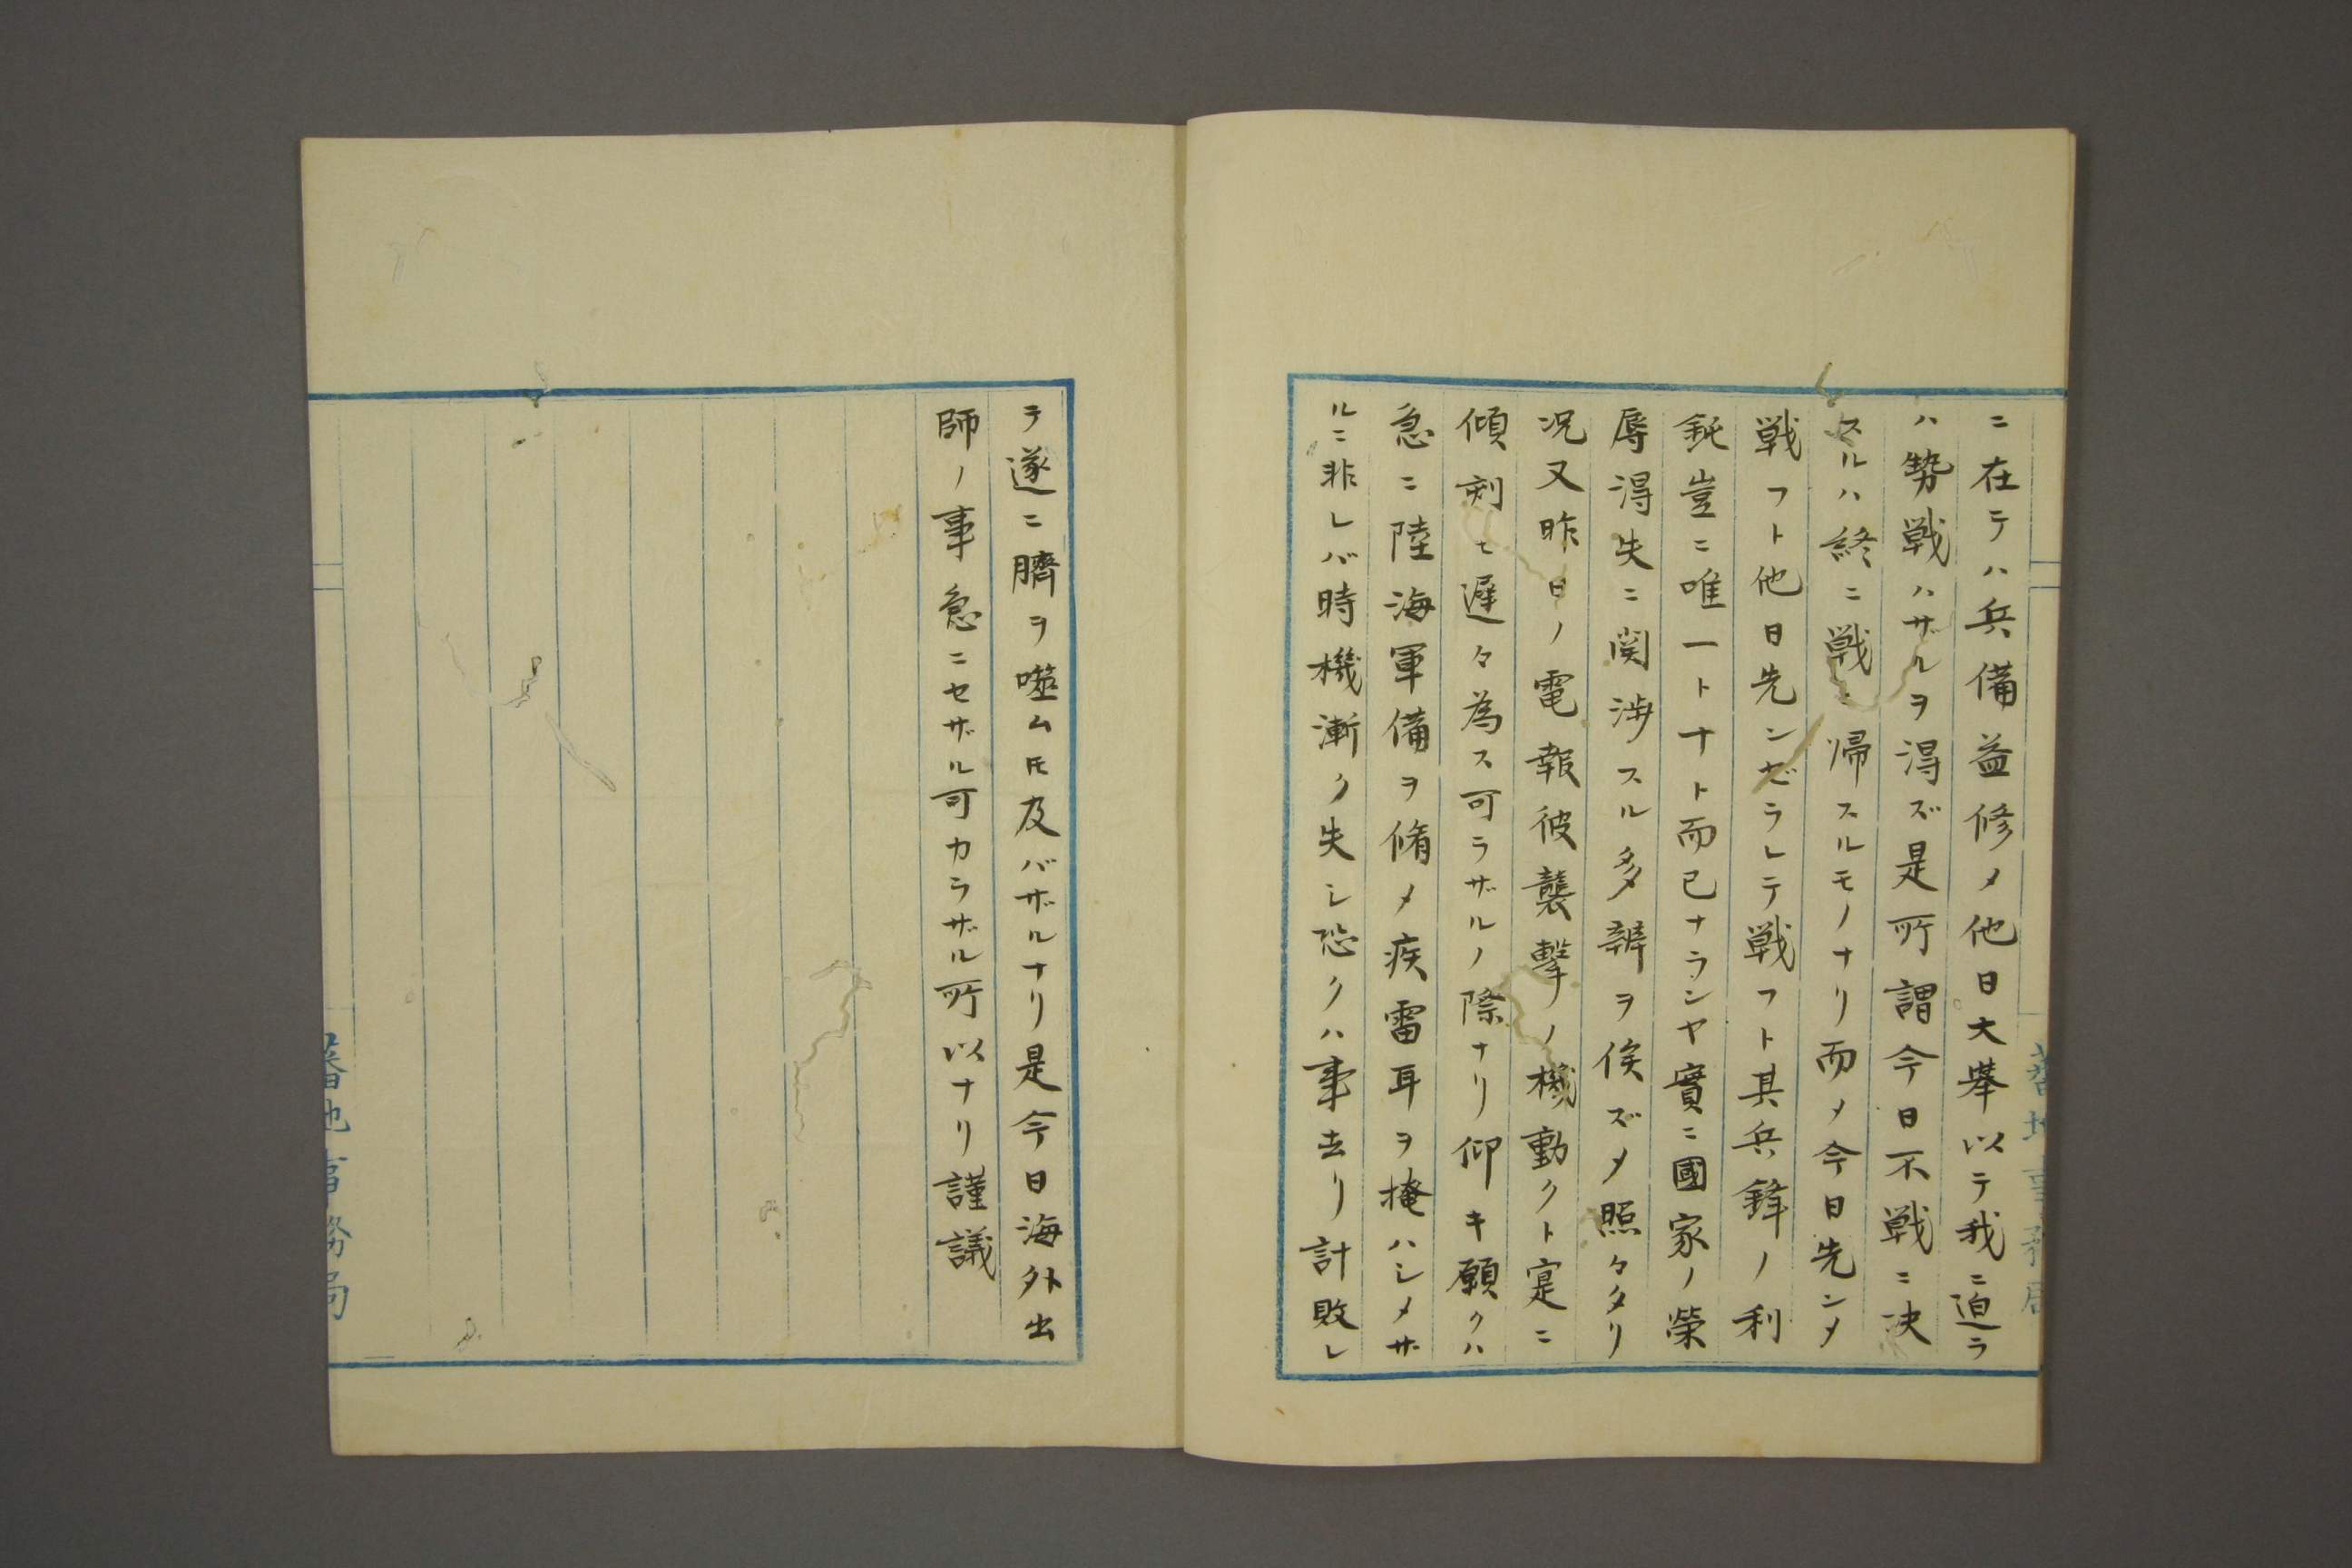 ニ在テハ兵備益修メ他日大挙以テ我ニ迫ラ
ハ勢戦ハザルヲ得ズ是所謂今日不戦ニ决
スルハ終ニ戦ニ帰スルモノナリ而メ今日先ンメ
戦フト他日先ンゼラレテ戦フト其兵鋒ノ利
鈍豈ニ唯一トナト而已ナランヤ實ニ國家ノ榮
辱得失ニ関渉スル多辨ヲ俟ズメ照々タリ
况又昨日ノ電報彼襲撃ノ機動クト寔ニ
傾刻モ遅々為ス可ラザルノ際ナリ仰キ願クハ
急ニ陸海軍備ヲ脩メ疾雷耳ヲ掩ハシメザ
ルニ非レバ時機漸ク失シ恐クハ事去リ計敗レ
蕃地事務局
テ遂ニ臍ヲ噬ムトモ及バザルナリ是今日海外出
師ノ事急ニセザル可カラザル所以ナリ謹議
蕃地事務局